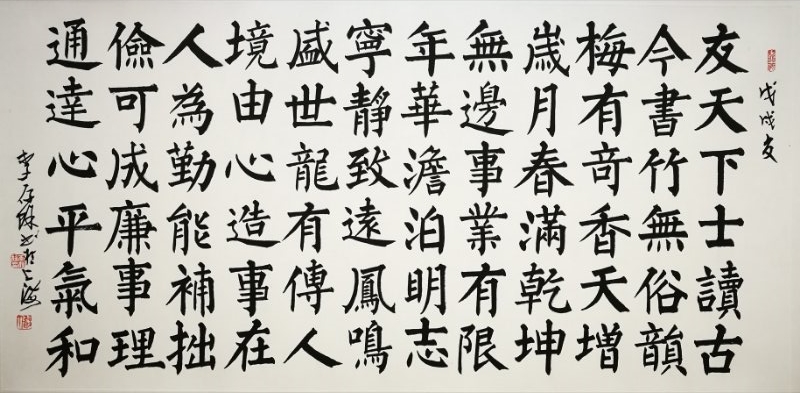 戊戌夏
友天下士讀古
今書竹無俗韻
梅有奇香天增
歲月春滿乾坤
無邊事業有限
年華澹泊明志
寧靜致遠鳳鳴
盛世龍有傳人
境由心造事在
人為勤能補拙
儉可成廉事理
通達心平氣和
李存書於上海